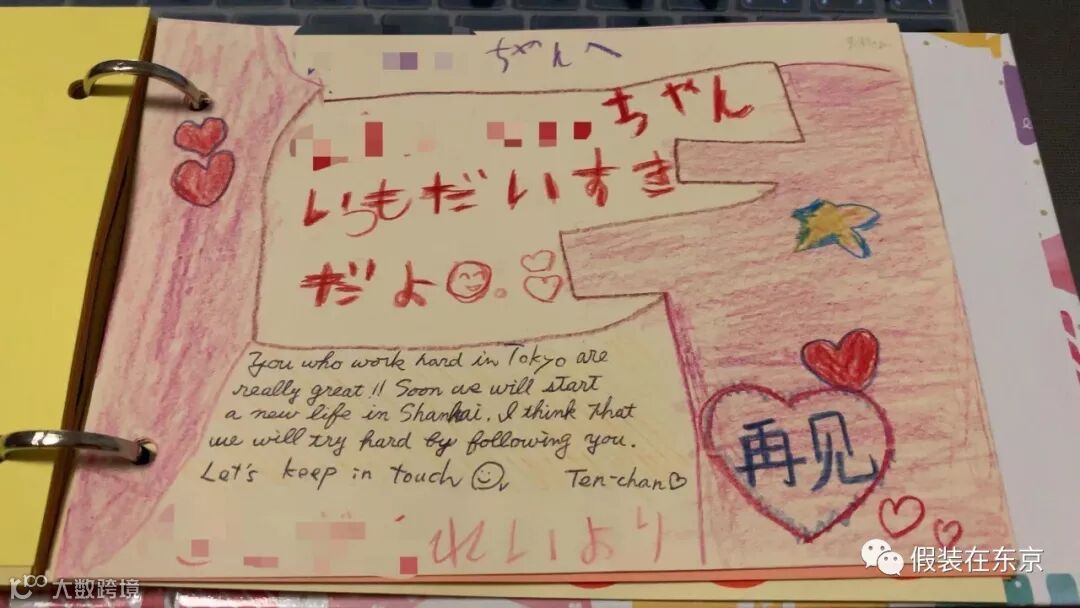 ちゃんへ
ちゃん
いつもだいすき
だよ
You who work hard in Tokyo are
really great!! Soon we will start
a new life in Shanhai. I think that
we will try hard by following you.
Let's keep in touch
Ten-chan♡
再见
れいより
假装在东京
大数跨境